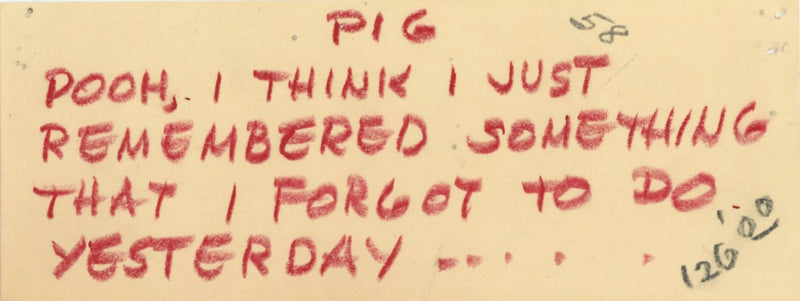 PIG 58
POOH, I THINK I JUST
REMEMBERED SOMETHING
THAT I FORGOT TO DO.
YESTERDAY ..... 126'00